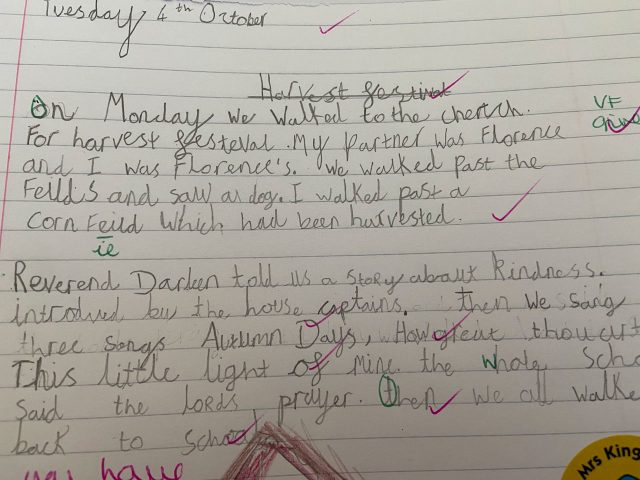 Tuesday 4th October
Harvest festival
On Monday we walked to the cherch. VF
For harvest festeval. My partner was Florence
and I was Florence's. We walked past the
Feild's and saw a dog. I walked past a
Corn Feild which had been harvested.
ie
Reverend Darleen told us a story about kindness.
introdued by the house captains. Then we sang
three songs Autumn Days, How great thou art
This little light of mine. the whole Scho
said the lords prayer. then we all walke
back to school
you have
Mrs King